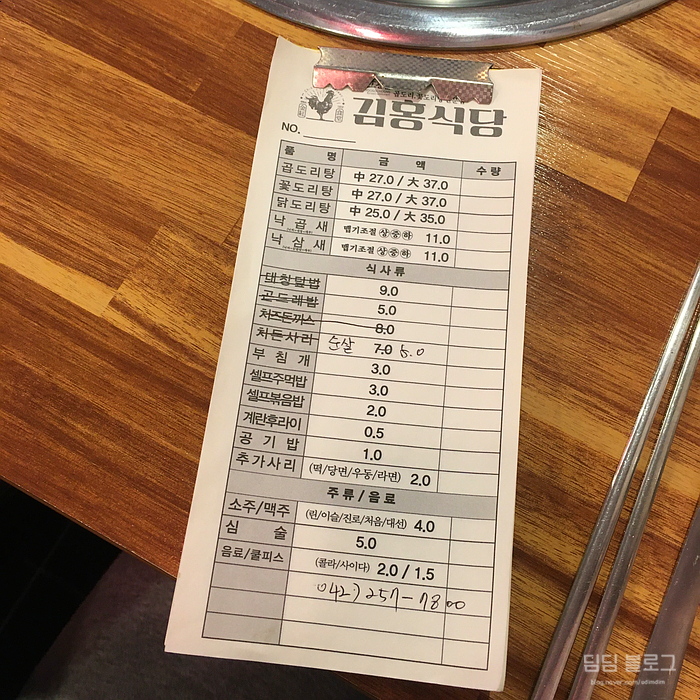 김홍식당
NO.
품 명 금 액 수 량
곱도리탕 中 27.0 / 大 37.0
꽃도리탕 中 27.0 / 大 37.0
닭도리탕 中 25.0 / 大 35.0
낙곱새 맵기조절 상중하 11.0
낙삼새 맵기조절 상중하 11.0
식사류
대창덮밥 9.0
곤드레밥 5.0
치즈돈까스 8.0
차돈사리 순살 7.0 5.0
부침개 3.0
셀프주먹밥 3.0
셀프볶음밥 2.0
계란후라이 0.5
공기밥 1.0
추가사리 (떡/당면/우동/라면) 2.0
주류/음료
소주/맥주 (린/이슬/진로/처음/대선) 4.0
심 술 5.0
음료/쿨피스 (콜라/사이다) 2.0 / 1.5
042) 257-7800
딤딤 블로그
blog.naver.com/adimdim